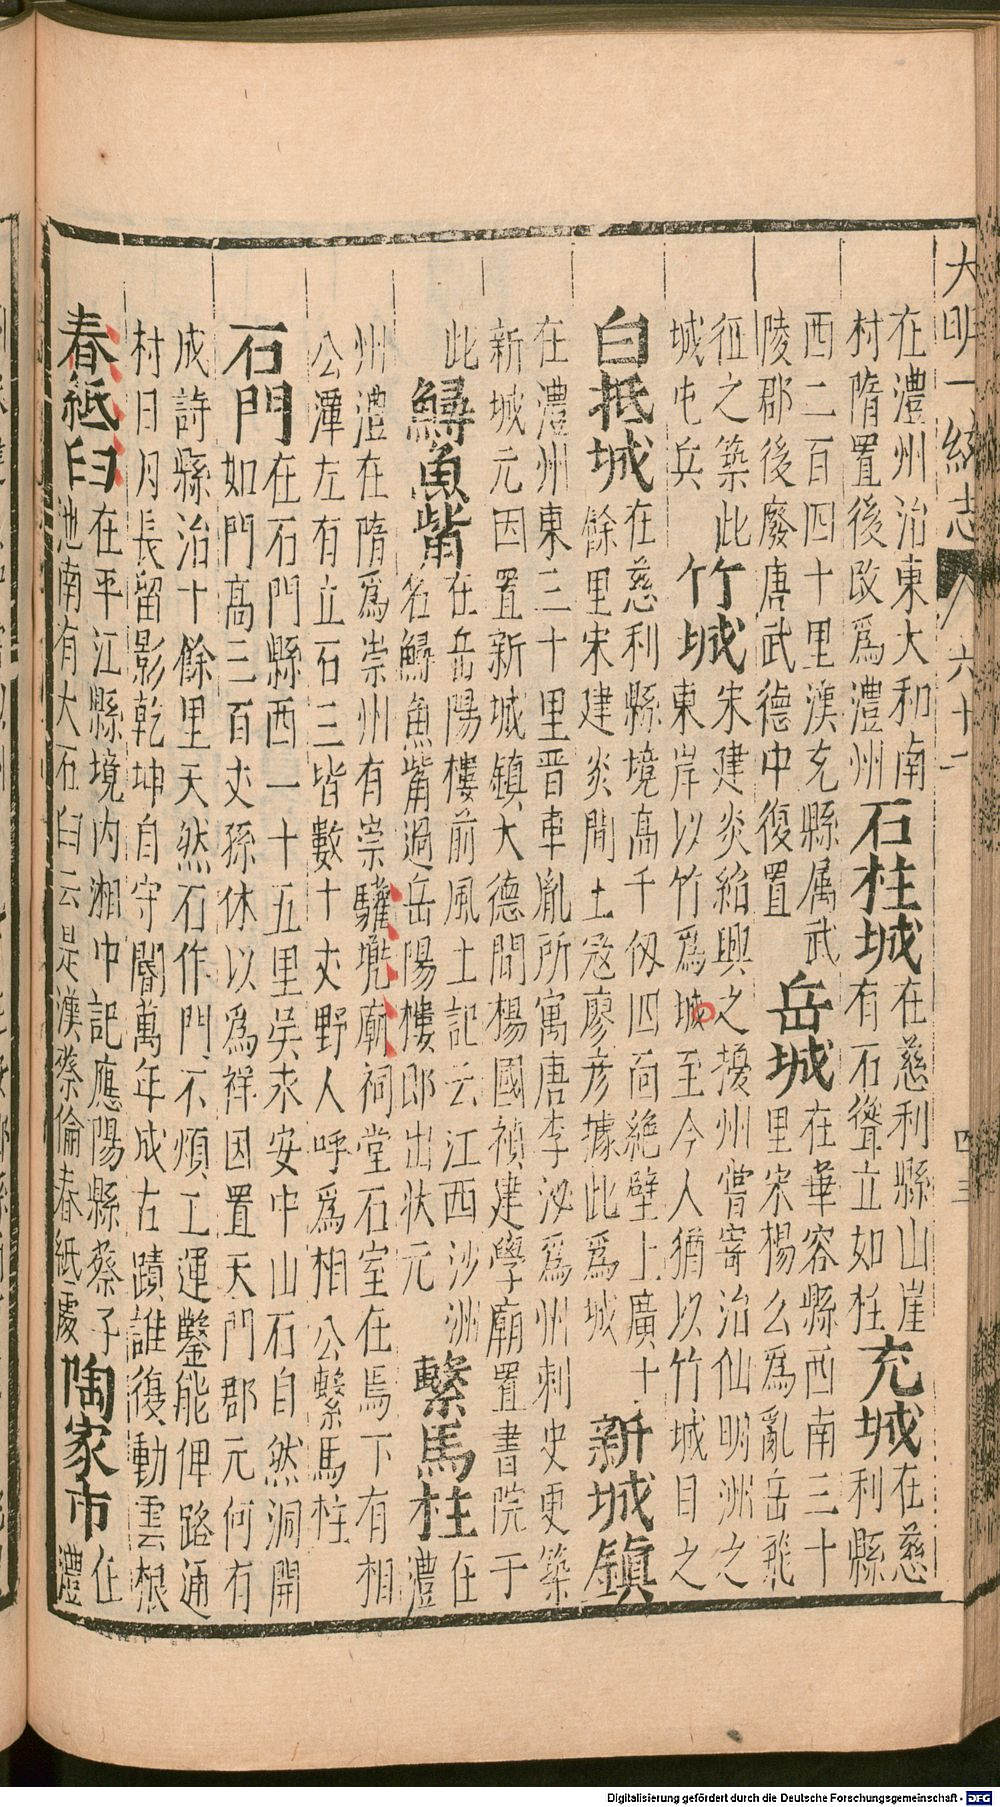 大明一統志 六十二 四三
在澧州治東大和南
村隋置後改爲澧州
石柱城
在慈利縣山崖
有石聳立如柱
充城
在慈
利縣
西二百四十里漢充縣属武
陵郡後廢唐武德中復置
岳城
在華容縣西南三十
里宋楊么爲亂岳飛
征之築此
城屯兵
竹城
宋建炎紹興之擾州嘗寄治仙明洲之
東岸以竹爲城至今人猶以竹城目之
白抵城
在慈利縣境高千仭四面絶壁上廣十
餘里宋建炎間土冦廖彦據此爲城
新城鎮
在澧州東三十里晋車胤所寓唐李泌爲州刺史更築
新城元因置新城鎮大德間楊國禎建學廟置書院于
此
鱘魚觜
在岳陽樓前風土記云江西沙洲
名鱘魚觜過岳陽樓即出狀元
繫馬柱
在
澧
州澧在隋爲崇州有崇驩兠廟祠堂石室在焉下有相
公潭左有立石三皆數十丈野人呼爲相公繫馬柱
石門
在石門縣西一十五里吳永安中山石自然洞開
如門高三百丈孫休以爲祥因置天門郡元何有
成詩縣治十餘里天然石作門不煩工運鑿能俾路通
村日月長留影乾坤自守閽萬年成古蹟誰復動雲根
舂紙臼
在平江縣境内湘中記應陽縣蔡子
池南有大石臼云是漢蔡倫舂紙處
陶家市
在
澧
Digitalisierung gefördert durch die Deutsche Forschungsgemeinschaft - DFG